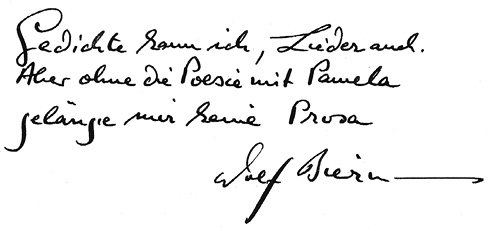 Gedichte kann ich, Lieder auch.
Aber ohne die Poesie mit Pamela
gelänge mir keine Prosa
Wolf Biermann